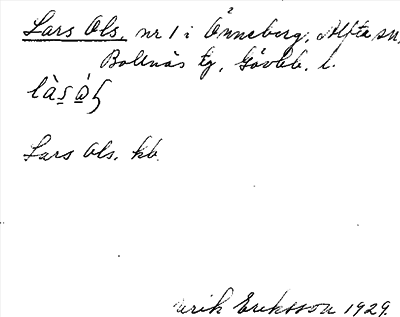 Lars Ols, nr 1 i Änneberg, Alfta sn,
Bollnäs tg, Gävleb. l.
Lars Ols. kb.
Erik Eriksson 1929.